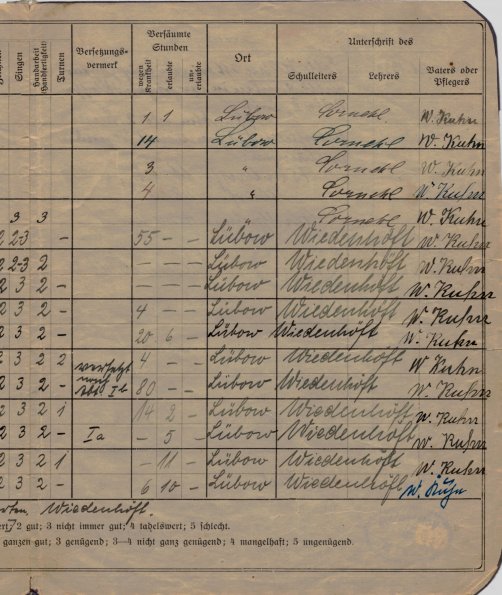 Singen Handarbeit Handfertigkeit Turnen Versetzungsvermerk Versäumte Stunden wegen Krankheit erlaubte unerlaubte Ort Unterschrift des Schulleiters Lehrers Vaters oder Pflegers
1 1 Lübow W. Kuhn
14 Lübow W. Kuhn
3 " W. Kuhn
4 " W. Kuhn
3 3 W. Kuhn
2 2-3 - 55 - - Lübow Wiedenhöft W. Kuhn
2 2-3 2 - - - Lübow Wiedenhöft W. Kuhn
2 3 2 - - - - Lübow Wiedenhöft W. Kuhn
2 3 2 - 4 - - Lübow Wiedenhöft W. Kuhn
2 3 2 - 20 6 - Lübow Wiedenhöft W. Kuhn
2 3 2 2 versetzt 4 Lübow Wiedenhöft W Kuhn
2 3 2 - nach Abt. Ib 80 - - Lübow Wiedenhöft W. Kuhn
2 3 2 1 14 2 - Lübow Wiedenhöft W. Kuhn
2 3 2 - Ia - 5 - Lübow Wiedenhöft W. Kuhn
2 3 2 1 - 11 - Lübow Wiedenhöft W. Kuhn
2 3 2 - 6 10 - Lübow Wiedenhöft W. Kuhn
Wiedenhöft.
2 gut; 3 nicht immer gut; 4 tadelswert; 5 schlecht.
ganzen gut; 3 genügend; 3—4 nicht ganz genügend; 4 mangelhaft; 5 ungenügend.